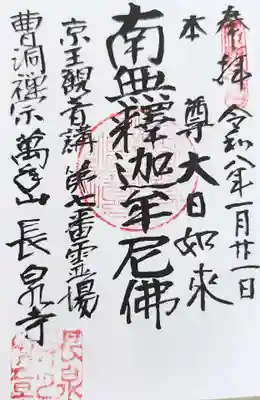 奉拝 令和八年一月廿一日
本尊大日如来
南無釋迦牟尼佛
京王觀音講 第七番霊場
曹洞禅宗 萬年山 長泉寺